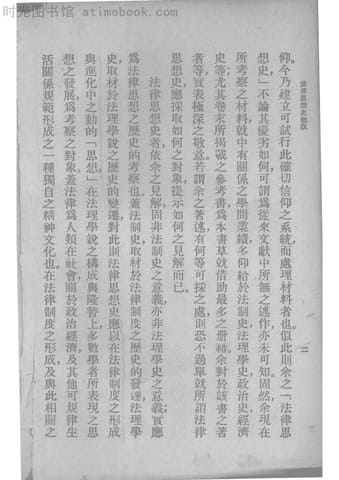 时光图书馆 atimebook.com
法律思想史概說
二
仰。今乃建立可試行此確切信仰之系統而處理材料者也。似此則余之「法律思
想史」不論其優劣如何,可謂爲從來文獻中所無之述作,亦未可知。固然余現在
所考察之材料就中有關係之學間業績多仰給於法制史法理學史政治史經濟
史等尤其卷末所揭載之參考書爲本書草就借助最多之册籍。余對於該書之著
者等實表極深之敬意。若謂余之著述有何等可採之處,則恐不過單就所謂法律
思想史應採取如何之對象,提示如何之見解而已。
法律思想史者依余之見解,固非法制史之意義,亦非法理學史之意義;實應
爲法律思想之歷史的考察也。蓋法制史取材於法律制度之歷史的發達;法理學
史取材於法理學說之歷史的變遷,對此則法律思想史應以在法律制度之形成
與進化中之動的「思想」在法理學說之構成與隆替上多數學者所表現之思
想之發展爲考察之對象。蓋法律爲人類在社會關於政治經濟及其他可規律生
活關係規範形成之一種獨自之精神文化也。在法律制度之形成及與此相關之